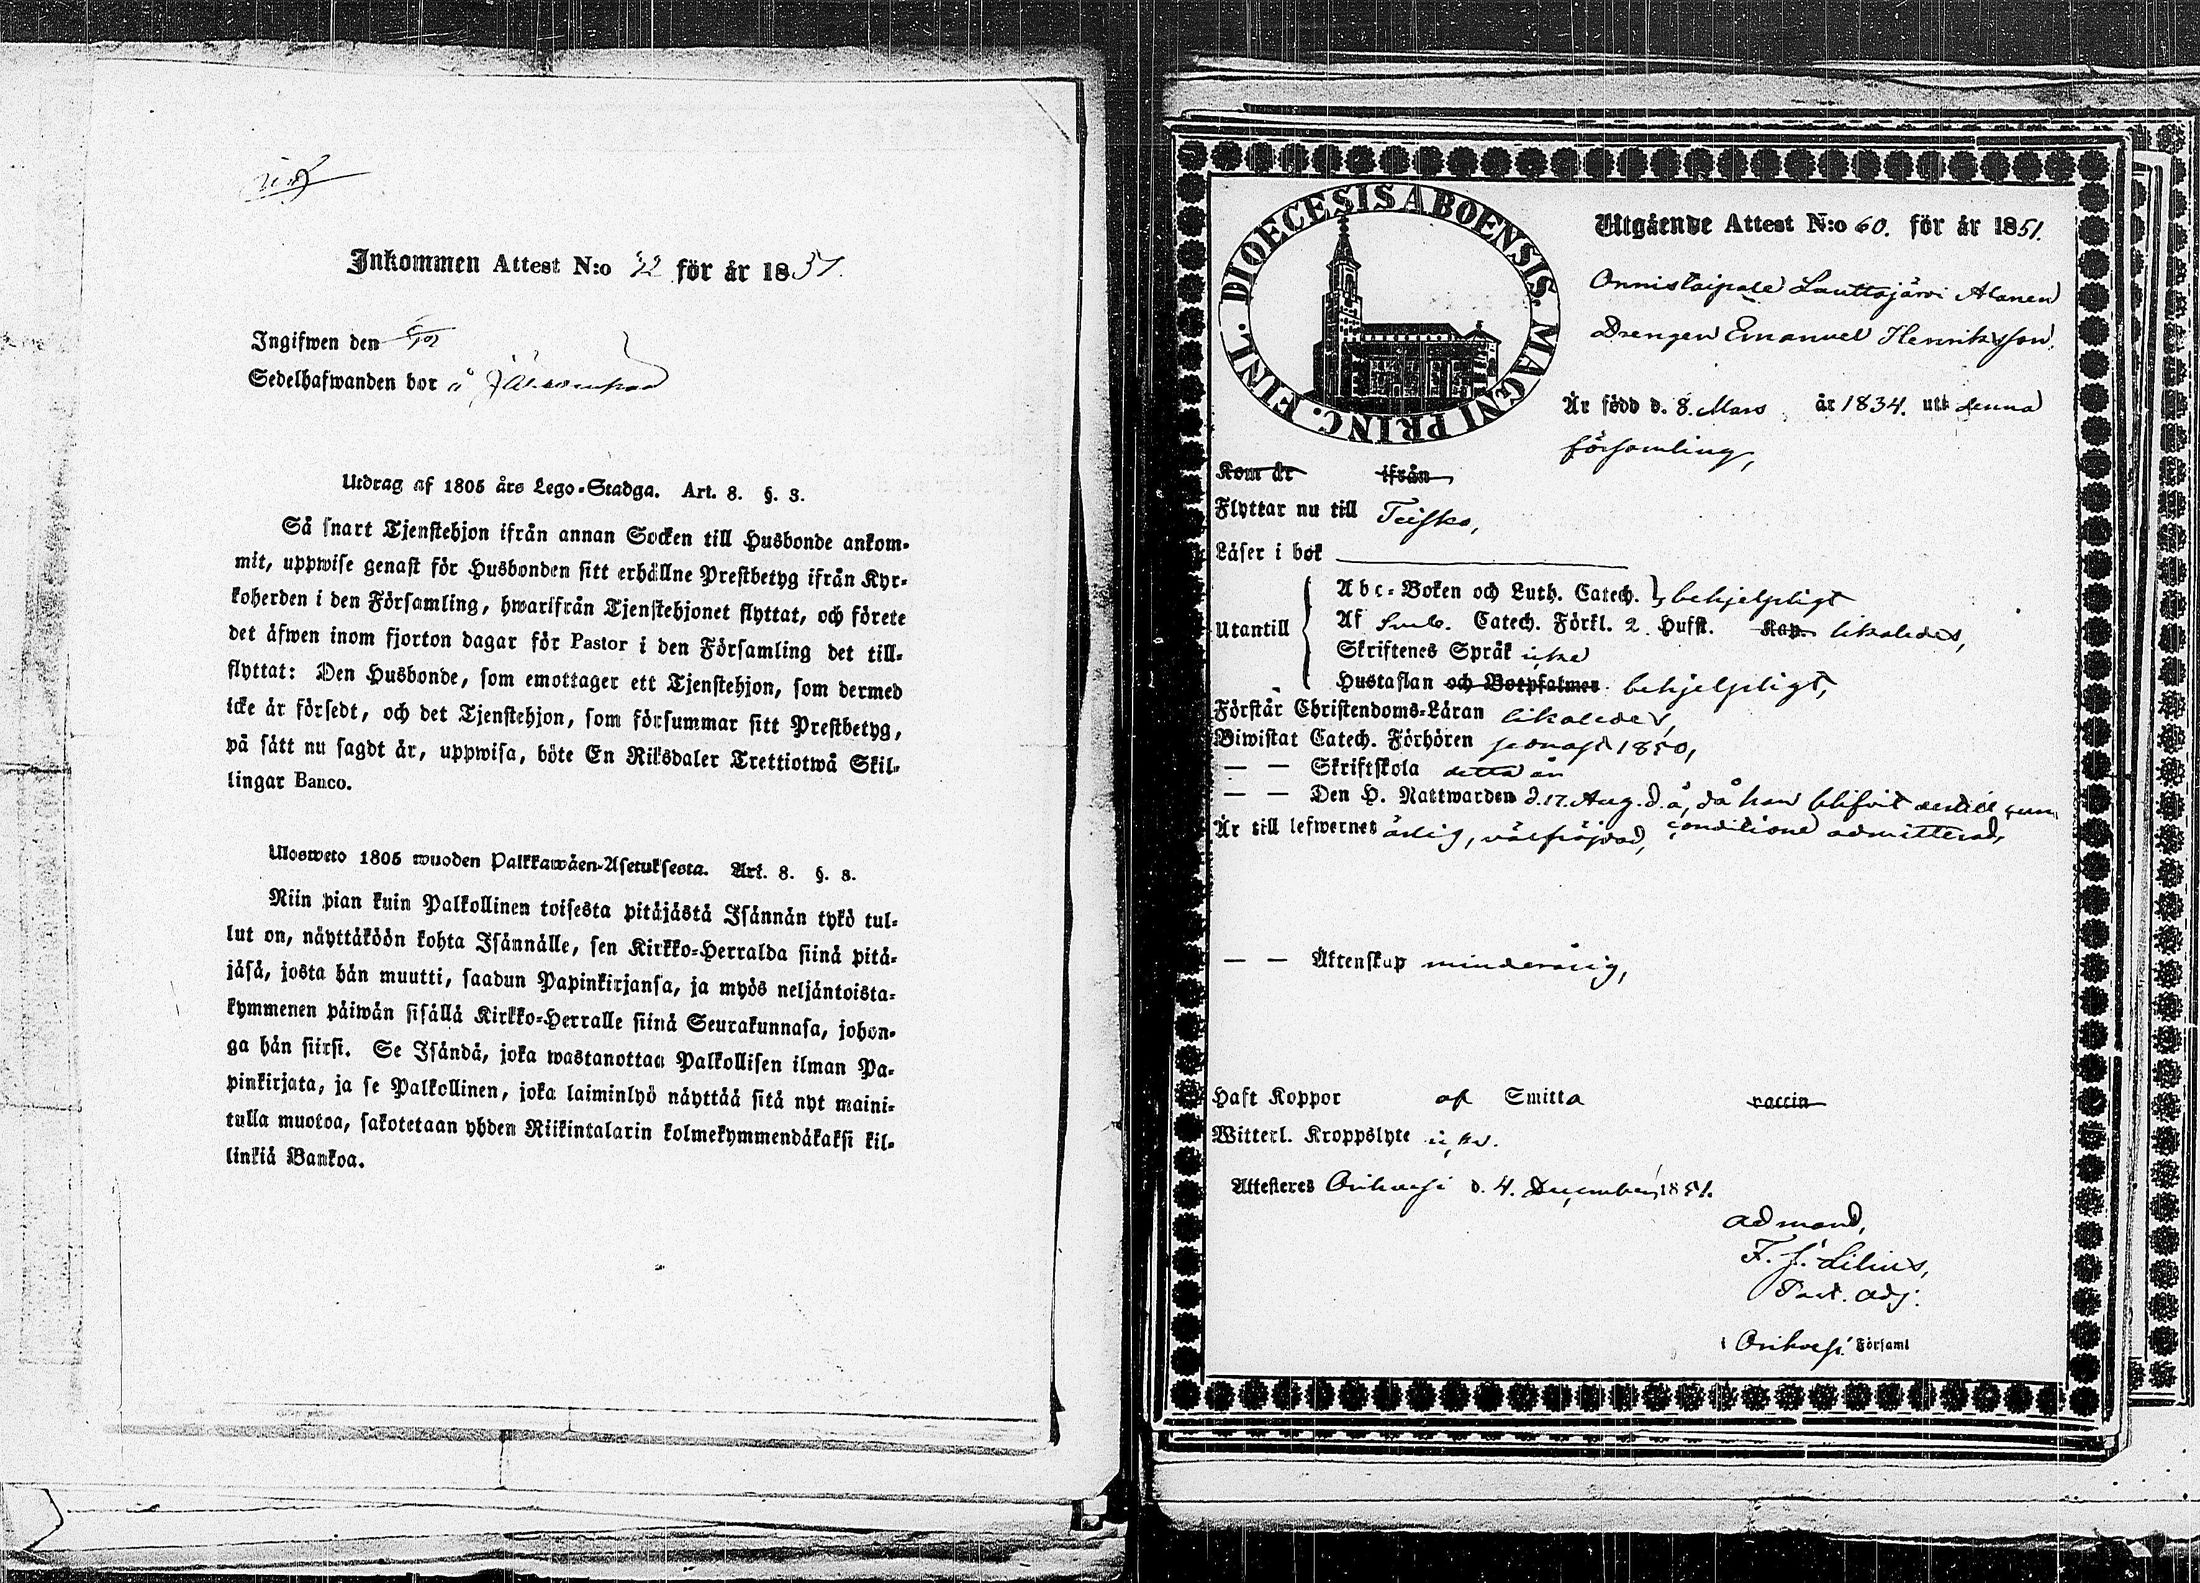 Inkommen Attest N:o 32 för år 1851.
Ingifwen den
Sedelhafwanden bor å
Utdrag af 1805 års Lego-Stadga. Art. 8. §. 3.
Så snart Tjenstehjon ifrån annan Socken till Husbonde ankom-
mit, uppwise genast för Husbonden sitt erhållne Prestbetyg ifrån Kyr-
koherden i den Församling, hwarifrån Tjenstehjonet flyttat, och förete
det äfwen inom fjorton dagar för Pastor i den Församling det till-
flyttat: Den Husbonde, som emottager ett Tjenstehjon, som dermed
icke är försedt, och det Tjenstehjon, som försummar sitt Prestbetyg,
på sätt nu sagdt är, uppwisa, böte En Riksdaler Trettiotwå Skil-
lingar Banco.
Ulosweto 1805 wuoden Palkkawäen-Asetuksesta. Art. 8. §. 3.
Niin pian kuin Palkollinen toisesta pitäjästä Isännän tykö tul-
lut on, näyttäköön kohta Isännälle, sen Kirkko-Herralda siinä pitä-
jäsä, josta hän muutti, saadun Papinkirjansa, ja myös neljäntoista-
kymmenen päiwän sisällä Kirkko-Herralle siinä Seurakunnasa, johon-
ga hän siirsi. Se Isändä, joka wastanottaa Palkollisen ilman Pa-
pinkirjata, ja se Palkollinen, joka laiminlyö näyttää sitä nyt maini-
tulla muotoa, sakotetaan yhden Riikintalarin kolmekymmendäkaksi kil-
linkiä Bankoa.
DIOECESIS ABOENSIS. MAGNI PRINC. FINL.
Utgående Attest N:o 60. för år 1851.
Onnistaipale Lauttajärvi Alanen
Drengen Emanuel Henriksson,
Är född d. 8. Mars år 1834. uti denna
församling,
Kom år ifrån
Flyttar nu till Teisko,
Läser i bok
Utantill
Abc-Boken och Luth. Catech. behjelpligt
Af Sveb. Catech. Förkl. 2 Hufst. Kap. likaledes,
Skriftenes Språk icke
Hustaflan och Botpsalmer behjelpligt,
Förstår Christendoms-Läran likaledes,
Biwistat Catech. Förhören senast 1850,
— — Skriftskola detta år
— — Den H. Nattwarden d. 17. Aug. d. å, då han blifvit dertill cum
conditione admitterad,
Är till lefwernet ärlig, välfräjdad,
— — Äktenskap minderårig,
Haft Koppor af Smitta vaccin
Witterl. Kroppslyte icke.
Attesteres Orihvesi d. 4. December 1851.
ad mand,
F. J. Lilius,
Past. Adj.
i Orihvesi Församl